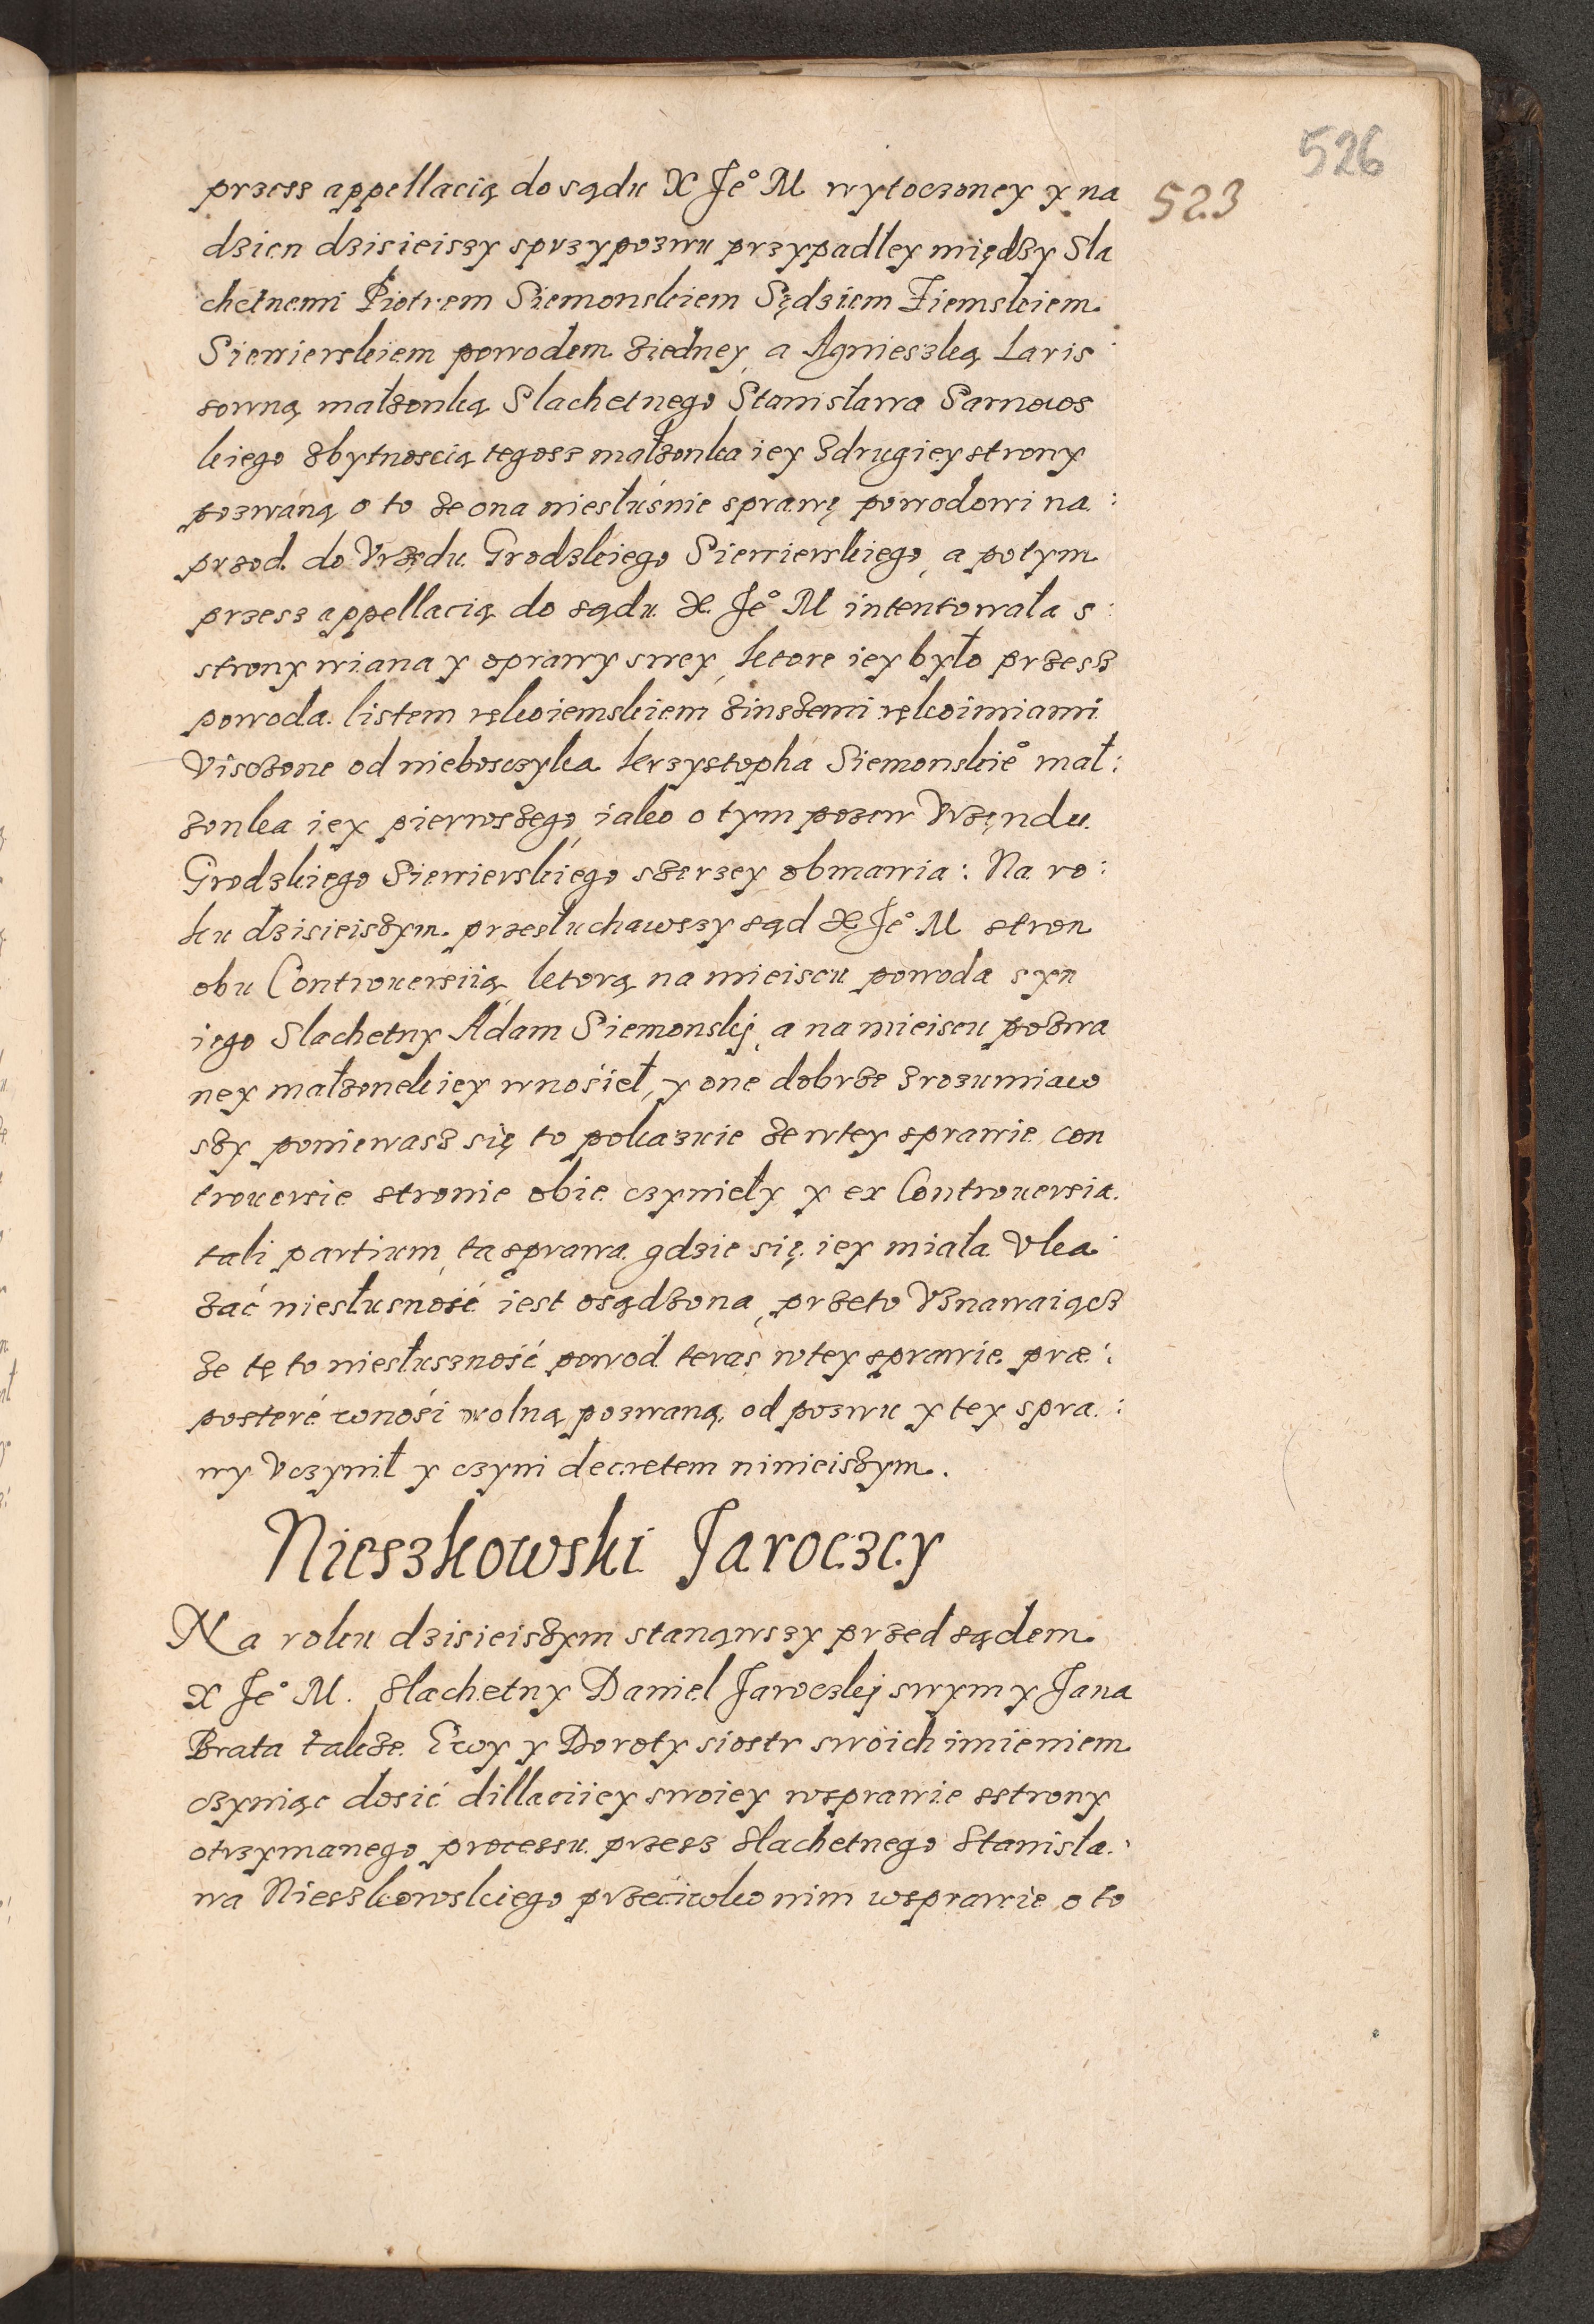 526
523
przess appellacią do sądu X Je° M wytoczoney y na
dzien dzisieiszy sprzypozwu przypadłey między Sla
chetnemi Piotrem Siemonskiem Sędziem Ziemskiem
Siewierskiem powodem ziedney a Agnieszką Laris
sowną małzonką Slachetnego Stanisława Sarnows
kiego zbytnoscią tegosz małzonka iey zdrugiey strony
pozwaną o to ze ona niesłuśnie sprawę powodowi na:
przod do Vrzędu Grodzkiego Siewierskiego, a potym
przesz appellacią do sądu X Je° M intentowała s:
strony wiana y oprawy swey, ktore iey było przesz
powoda listem rękoiemskiem zinszemi rękoimiami
Viszone od nieboszczyka krzystopha Siemonskie° mał:
zonka iey pierwszego, iako o tym pozew Vrzęndu
Grodzkiego Siewierskiego szerzey obmawia: Na ro:
ku dzisieiszym przesłuchawszy sąd X Je° M stron
obu Controuersiią, ktorą na mieiscu powoda syn
iego Slachetny Adam Siemonskj, a na mieiscu pozwa
ney małzonek iey wnosieł, y one dobrze zrozumiaw
szy poniewasz się to pokazuie ze wtey sprawie con
trouersie stronie obie czynieły y ex Controuersia
tali partium, ta sprawa gdzie się iey miała Vka
zać niesłusność iest osądzona, przeto Vznawaiącz
ze tę to niesłuszność powod teras wtey sprawie præ:
posteré wnośi wolną pozwaną od pozwu y tey spra:
wy Vczynił y czyni decretem ninieiszym.
Nieszkowski Jaroczcy
Na roku dzisieiszym stanąwszy przed sądem
X Je° M. Slachetny Daniel Jaroczkj swym y Jana
Brata takze Ewy y Doroty siostr swoich imieniem
czyniąc dosić dillaciiey swoiey wsprawie sstrony
otrzymanego processu przesz Slachetnego Stanisła:
wa Nieszkowskiego przeciwko nim wsprawie o to